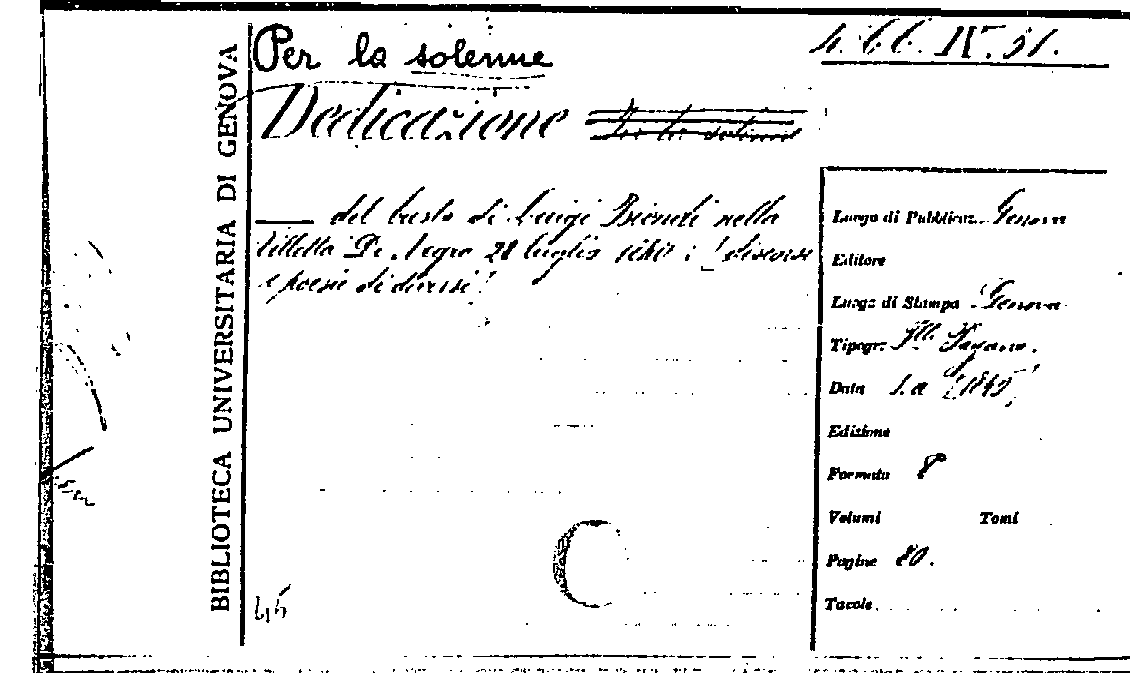 BIBLIOTECA UNIVERSITARIA DI GENOVA
Per la solenne
4. CC. IV. 51.
Dedicazione Per la solenne
— del busto di Luigi Biondi nella
Villetta Di Negro 28 luglio 1840 : [discorsi
e poesie di diversi]
Luogo di Pubblicaz. Genova
Editore
Luogo di Stampa Genova
Tipogr: F.lli Pagano.
Data s. a [1840]
Edizione
Formato 8°
Volumi Tomi
Pagine 80.
Tavole
45